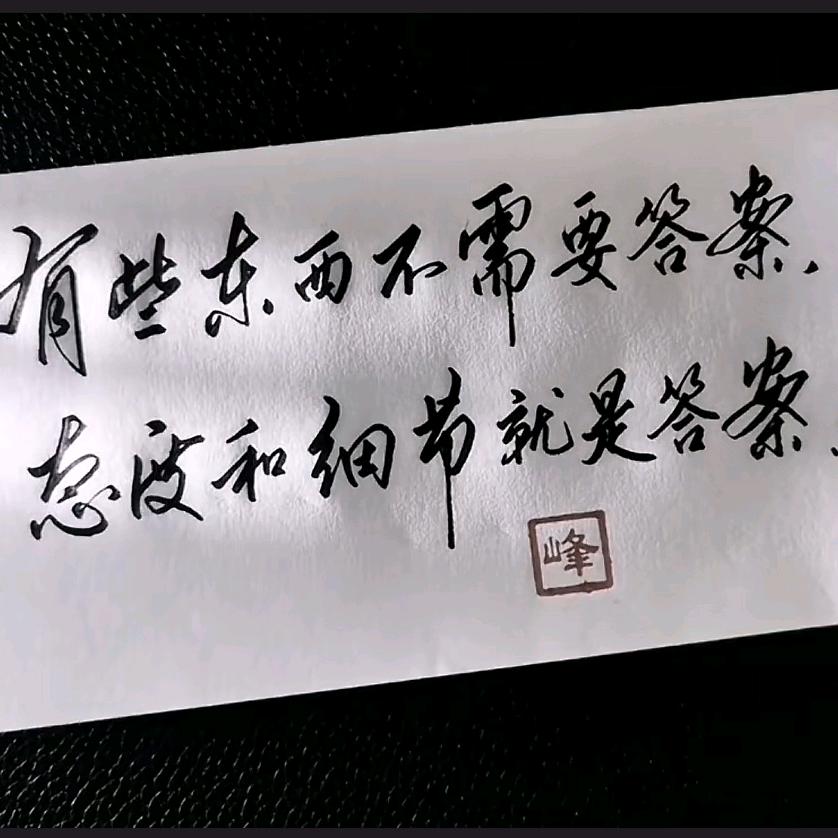 有些东西不需要答案.
态度和细节就是答案.
峰